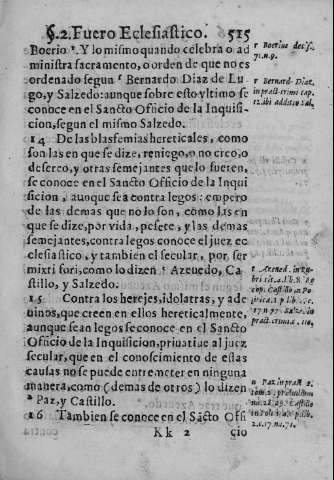 §.2. Fuero Eclesiastico. 515
Bocrio ʳ. Y lo mismo quando celebra o ad
ministra sacramento, o orden de que no es
ordenado segun ˢ Bernardo Diaz de Lu
go, y Salzedo: aunque sobre esto vltimo se
conoce en el Sancto Officio de la Inquisi-
cion, segun el mismo Salzedo.
14 De las blasfemias hereticales, como
son las en que se dize, reniego, o no creo, o
descreo, y otras semejantes que lo fueren,
se conoce en el Sancto Officio de la Inqui
sicion, aunque sea contra legos: empero
de las demas que no lo son, como las en
que se dize, por vida, pesete, y las demas
semejantes, contra legos conoce el juez ec
clesiastico, y tambien el secular, por ser
mixti fori, como lo dizen ᵗ Azeuedo, Ca
stillo, y Salzedo.
15 Contra los herejes, idolatras, y ade
uinos, que creen en ellos hereticalmente,
aunque sean legos se conoce en el Sancto
Officio de la Inquisicion, priuatiue al juez
secular, que en el conoscimiento de estas
causas no se puede entremeter en ninguna
manera, como (demas de otros) lo dizen
ᵘ Paz, y Castillo.
16 Tambien se conoce en el Sācto Offi
Kk 2 cio
r Bocrius decis.
71. n. 9.
Bernard. Diaz.
in pract. crimi. cap.
t Azeued. in ru-
Castillo in Po
u Paz in pract.